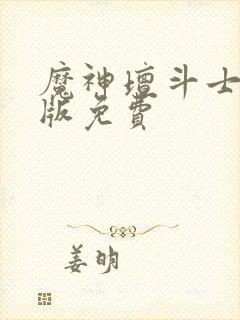 魔神壇斗士
版免費
姜明